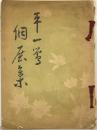 平一鶯
個展集